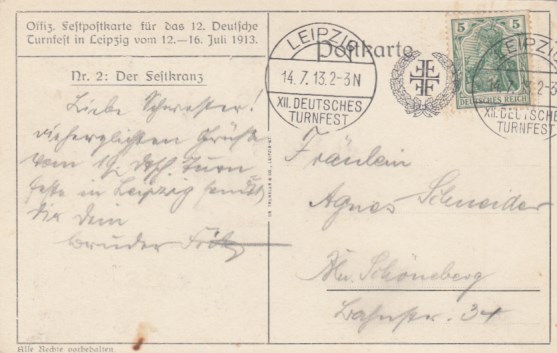 Offiz. Festpostkarte für das 12. Deutsche
Turnfest in Leipzig vom 12.—16. Juli 1913.
Nr. 2: Der Festkranz
Liebe Schwester!
die herzlichsten Grüße
vom 12. Dtsch. Turn
feste in Leipzig sendet
dir dein
Bruder Fritz
Alle Rechte vorbehalten
Postkarte
LEIPZIG
14.7.13.2-3N
XII. DEUTSCHES
TURNFEST
5 5
DEUTSCHES REICH
LEIPZIG
XII. DEUTSCHES
TURNFEST
Fräulein
Agnes Schneider
Schöneberg
Bahnstr. 34